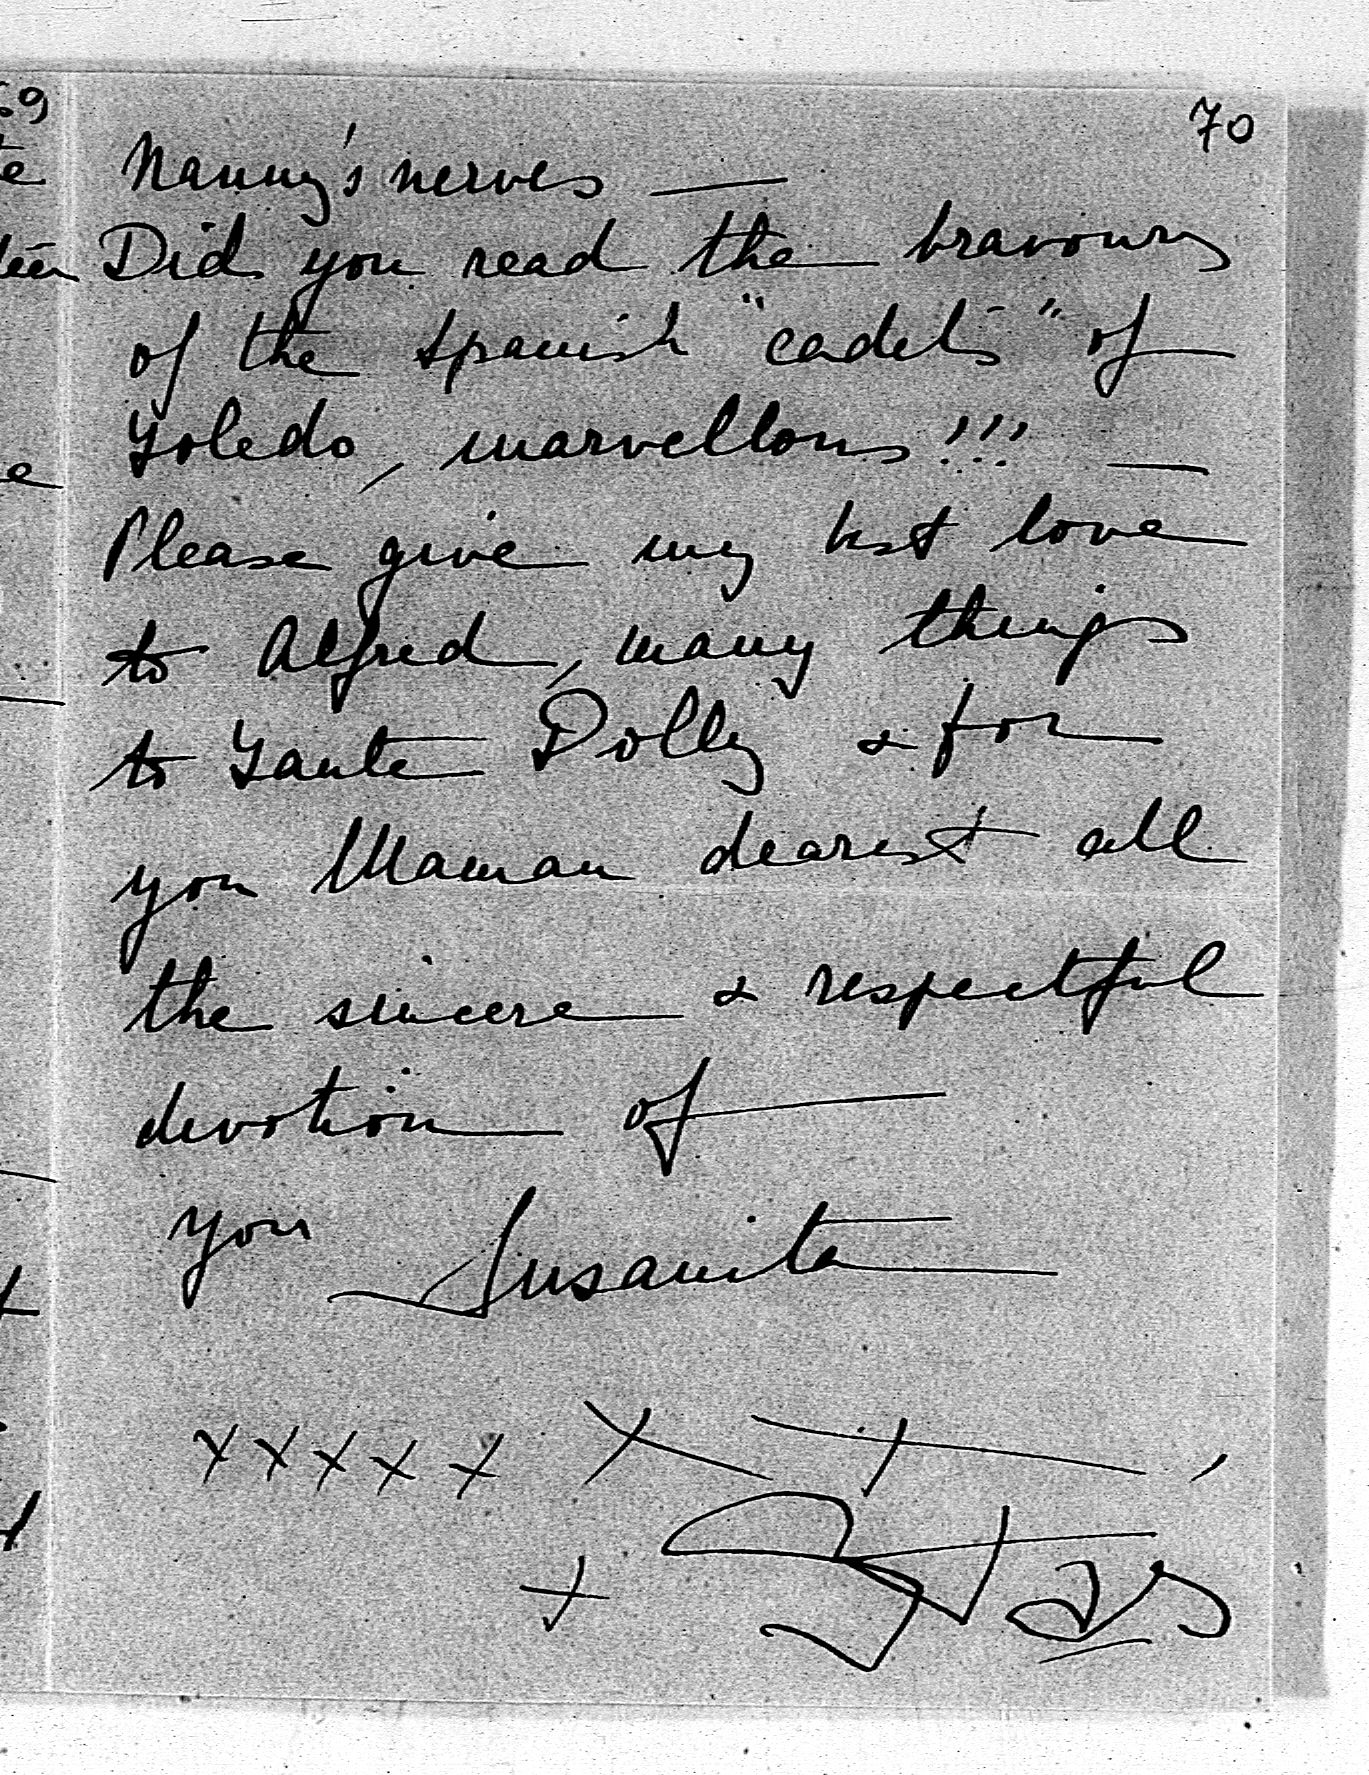 70
Nanny's nerves —
Did you read the bravoury
of the Spanish "cadets" of
Toledo, marvellous!!! —
Please give my best love
to Alfred, many things
to Tante Dolly & for
you Maman dearest all
the sincere & respectful
devotion of
you Susanita
x x x x x x
x Stas